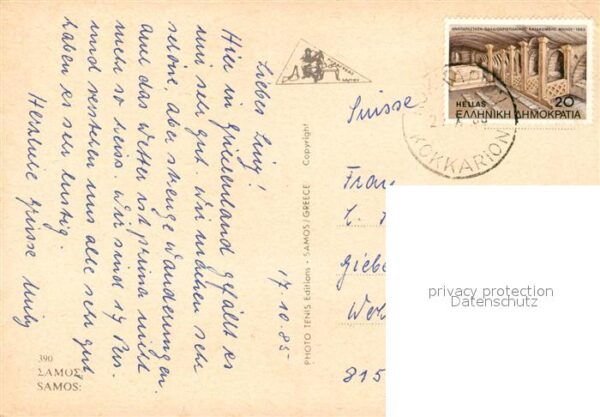 Liebes Lucy!
Hier in Griechenland gefällt es
mir sehr gut. Wir machen sehr
schöne, aber strenge Wanderungen
und das Wetter ist prima nicht
mehr so heiss. Wir sind 17 Pers.
und verstehen uns alle sehr gut
haben es sehr lustig!
Herzliche Grüsse
17.10.85
390
ΣΑΜΟΣ:
SAMOS:
PHOTO TENIS Editions - SAMOS/GREECE Copyright
HELLAS
20
ΕΛΛΗΝΙΚΗ ΔΗΜΟΚΡΑΤΙΑ
KOKKARION
Suisse
Frau
Giebe
815
privacy protection
Datenschutz